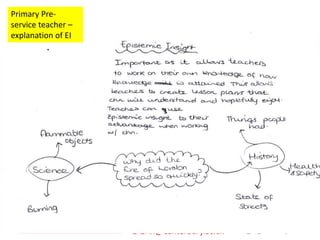 Primary Pre-
service teacher –
explanation of EI
Epistemic Insight
Important as it allows teachers
to work on their own knowledge of how
knowledge is attained. This allows
teachers to create lesson plans that
chn will understand and hopefully enjoy.
Teachers can use
Epistemic insight to their
advantage when working
w/ chn.
Things people
had.
Flammable
objects
Science
why did the
fire of London
spread so quickly
History
Health
& Safety
Burning
State of
Streets